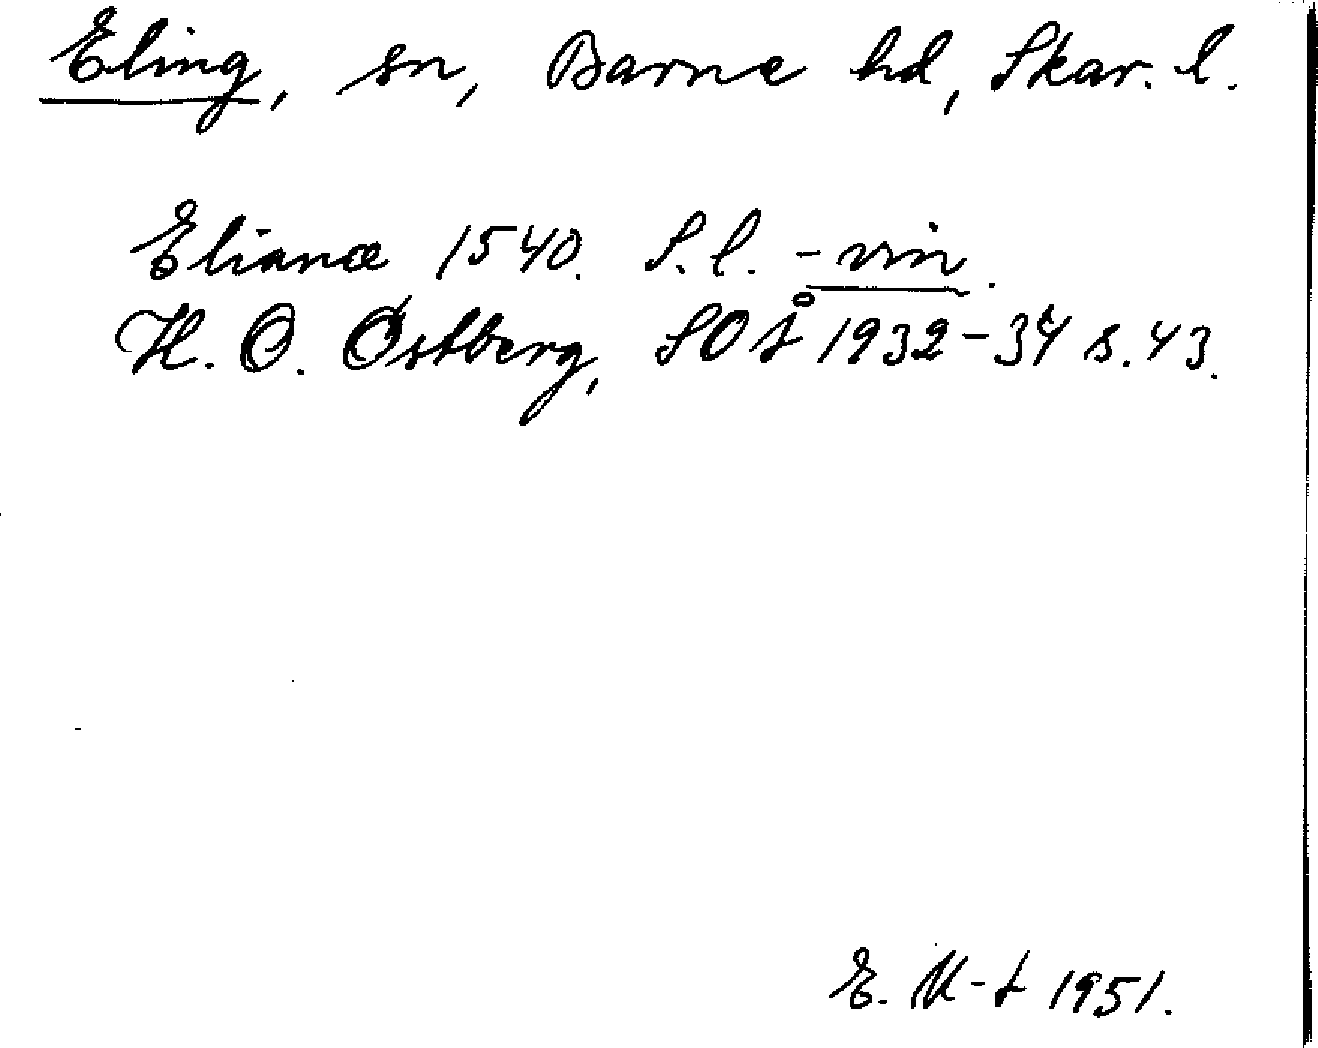 Eling, sn, Barne hd, Skar. l.
Elianæ 1540. S.l. -vin.
K. O. Østberg, SOÅ 1932-34 s. 43.
E. 1951.